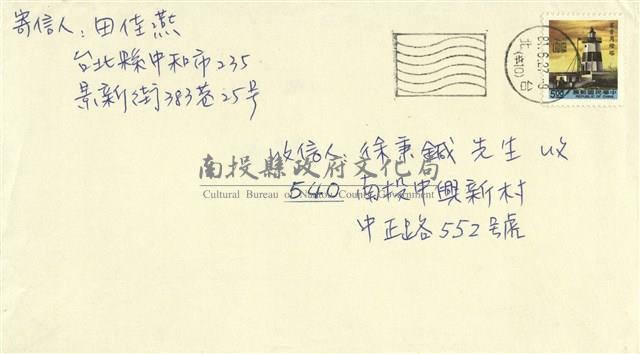 寄信人:田佳燕
台北縣中和市235
景新街383巷25号
收信人 徐秉鉞 先生 收
540 南投中興新村
中正路552號
南投縣政府文化局
Cultural Bureau of Nantou County Government
5.00
中華民國郵票
REPUBLIC OF CHINA